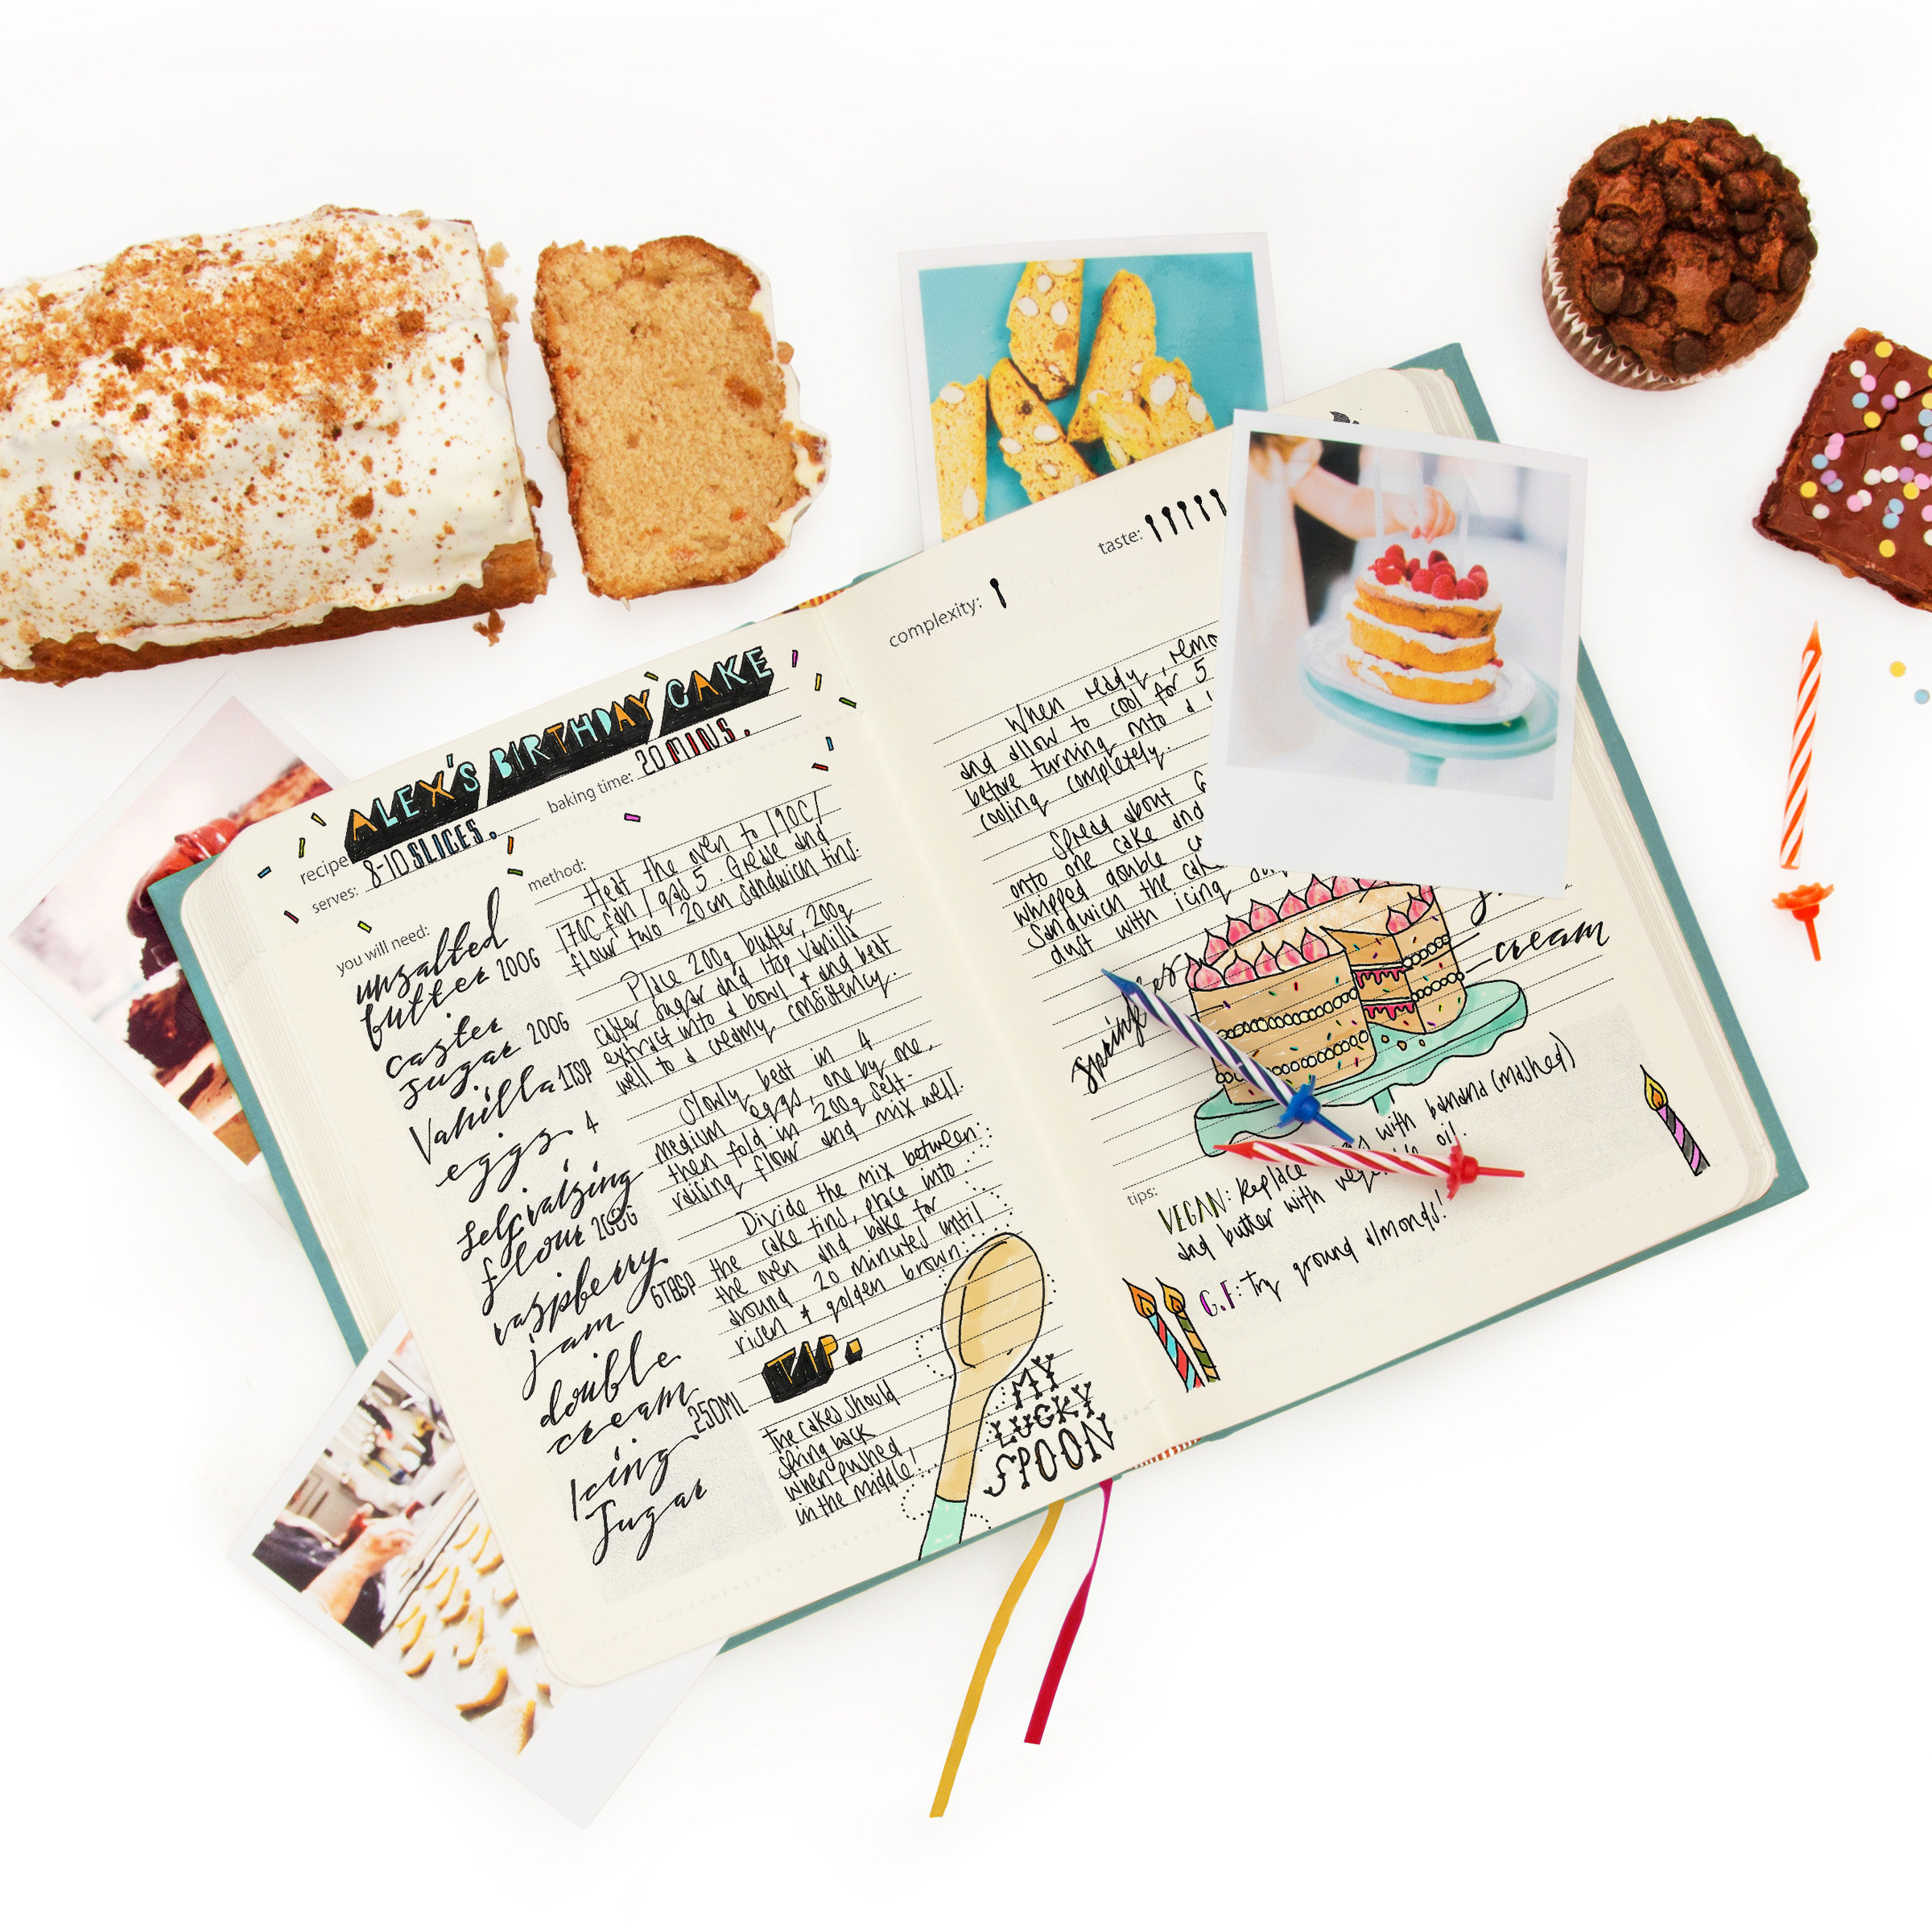 ALEX'S BIRTHDAY CAKE
recipe
serves: 8-10 SLICES.
baking time: 20 MINS.
you will need:
unsalted
butter 200G
caster
sugar 200G
Vanilla 1TSP
eggs. 4
selfraising
flour 200G
raspberry
jam 6TBSP
double
cream 250ML
Icing
Sugar
method:
Heat the oven to 190C/
170C fan / gas 5. Grease and
flour two 20cm sandwich tins.
Place 200g butter, 200g
caster sugar and 1tsp vanilla
extract into a bowl & and beat
well to a creamy consistency.
Slowly beat in 4
medium eggs, one by me,
then fold in 200g self-
raising flour and mix well.
Divide the mix between
the cake tins, place into
the oven and bake for
around 20 minutes until
risen & golden brown.
TIP.
The cakes should
spring back
when pushed
in the middle!
MY
LUCKY
SPOON
complexity:
taste:
When ready, remo
and allow to cool for 5
before turning onto a
cooling completely.
Spread about 6
onto one cake and
whipped double c
Sandwich the cak
dust with icing
cream
tips:
VEGAN: Replace with banana (mashed)
and butter with oil.
G.F: Try ground almonds!